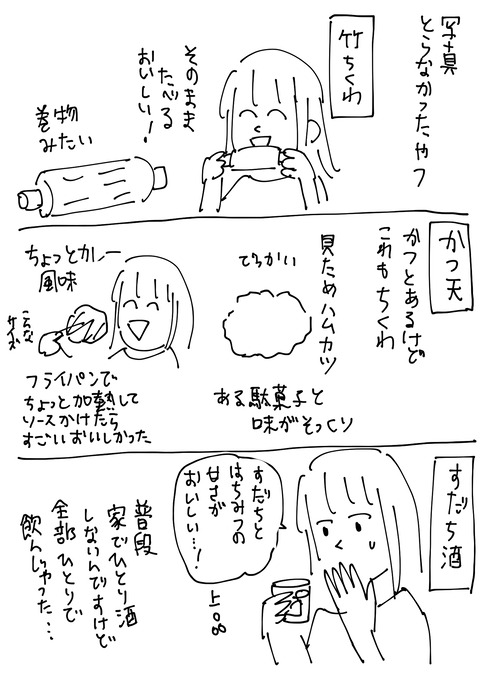 写真
とらなかったやつ
竹ちくわ
そのまま
たべる
おいしい！
巻物
みたい
かつ天
かつとあるけど
これもちくわ
見ためハムカツ
でっかい
ある駄菓子と
味がそっくり
ちょっとカレー
風味
こんな
サイズ
フライパンで
ちょっと加熱して
ソースかけたら
すごいおいしかった
すだち酒
すだちと
はちみつの
甘さが
おいしい…！
普段
家でひとり酒
しないんですけど
全部ひとりで
飲んじゃった…